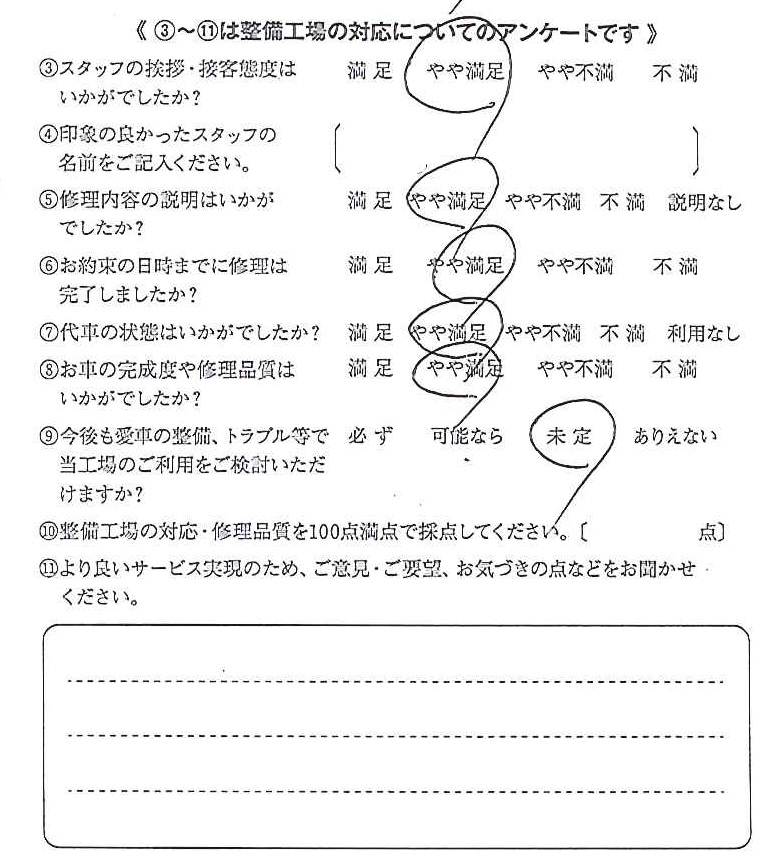 《 ③～⑪は整備工場の対応についてのアンケートです 》
③スタッフの挨拶・接客態度は 満 足 やや満足 やや不満 不 満
いかがでしたか？
④印象の良かったスタッフの 〔 〕
名前をご記入ください。
⑤修理内容の説明はいかが 満 足 やや満足 やや不満 不 満 説明なし
でしたか？
⑥お約束の日時までに修理は 満 足 やや満足 やや不満 不 満
完了しましたか？
⑦代車の状態はいかがでしたか？ 満 足 やや満足 やや不満 不 満 利用なし
⑧お車の完成度や修理品質は 満 足 やや満足 やや不満 不 満
いかがでしたか？
⑨今後も愛車の整備、トラブル等で 必 ず 可能なら 未 定 ありえない
当工場のご利用をご検討いただ
けますか？
⑩整備工場の対応・修理品質を100点満点で採点してください。〔 点〕
⑪より良いサービス実現のため、ご意見・ご要望、お気づきの点などをお聞かせ
ください。